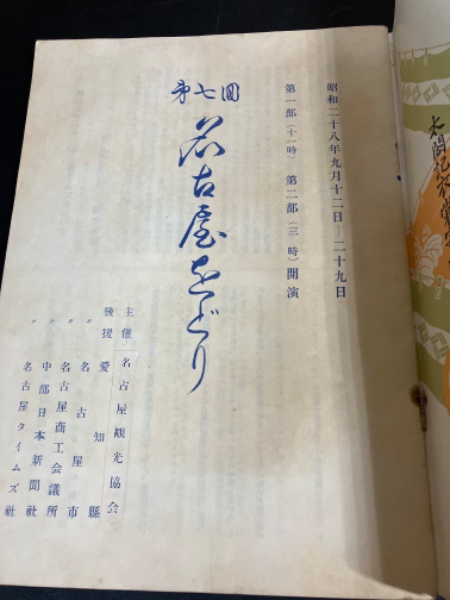 昭和二十八年九月十二日―二十九日
第一部(十一時) 第二部(三時)開演
第七回
名古屋をどり
主催 名古屋観光協会
後援 愛知縣
〃 名古屋市
〃 名古屋商工会議所
〃 中部日本新聞社
〃 名古屋タイムズ社
太閤記